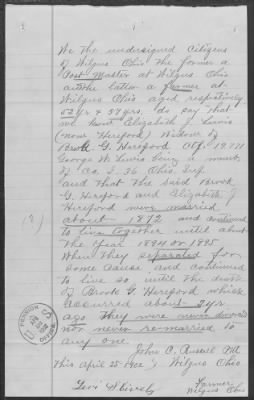 We the undersigned citizens
of Wilgus Ohio the former a
Post Master at Wilgus Ohio
and the latter a farmer at
Wilgus Ohio aged respectively
52 yrs & 58 yrs. do say that
we knew Elizabeth J Lewis
(now Hereford) Widow of
Brook G. Hereford Ctf.
George W Lewis being a
of Co. I. 36 Ohio Inf
and that the said Brook
G. Hereford and Elizabeth J
Hereford were married
about 1872 and continued
to live together until about
the year 1894 or 1895
When they separated for
some cause and continued
to live so until the death
of Brook G. Hereford which
occurred about 2 yrs
ago They were never divorced
nor never remarried to
any one.
John C. Russell PM
this April 25 1902 Wilgus Ohio
Levi
Farmer
Wilgus Ohio
(2)
PENSION